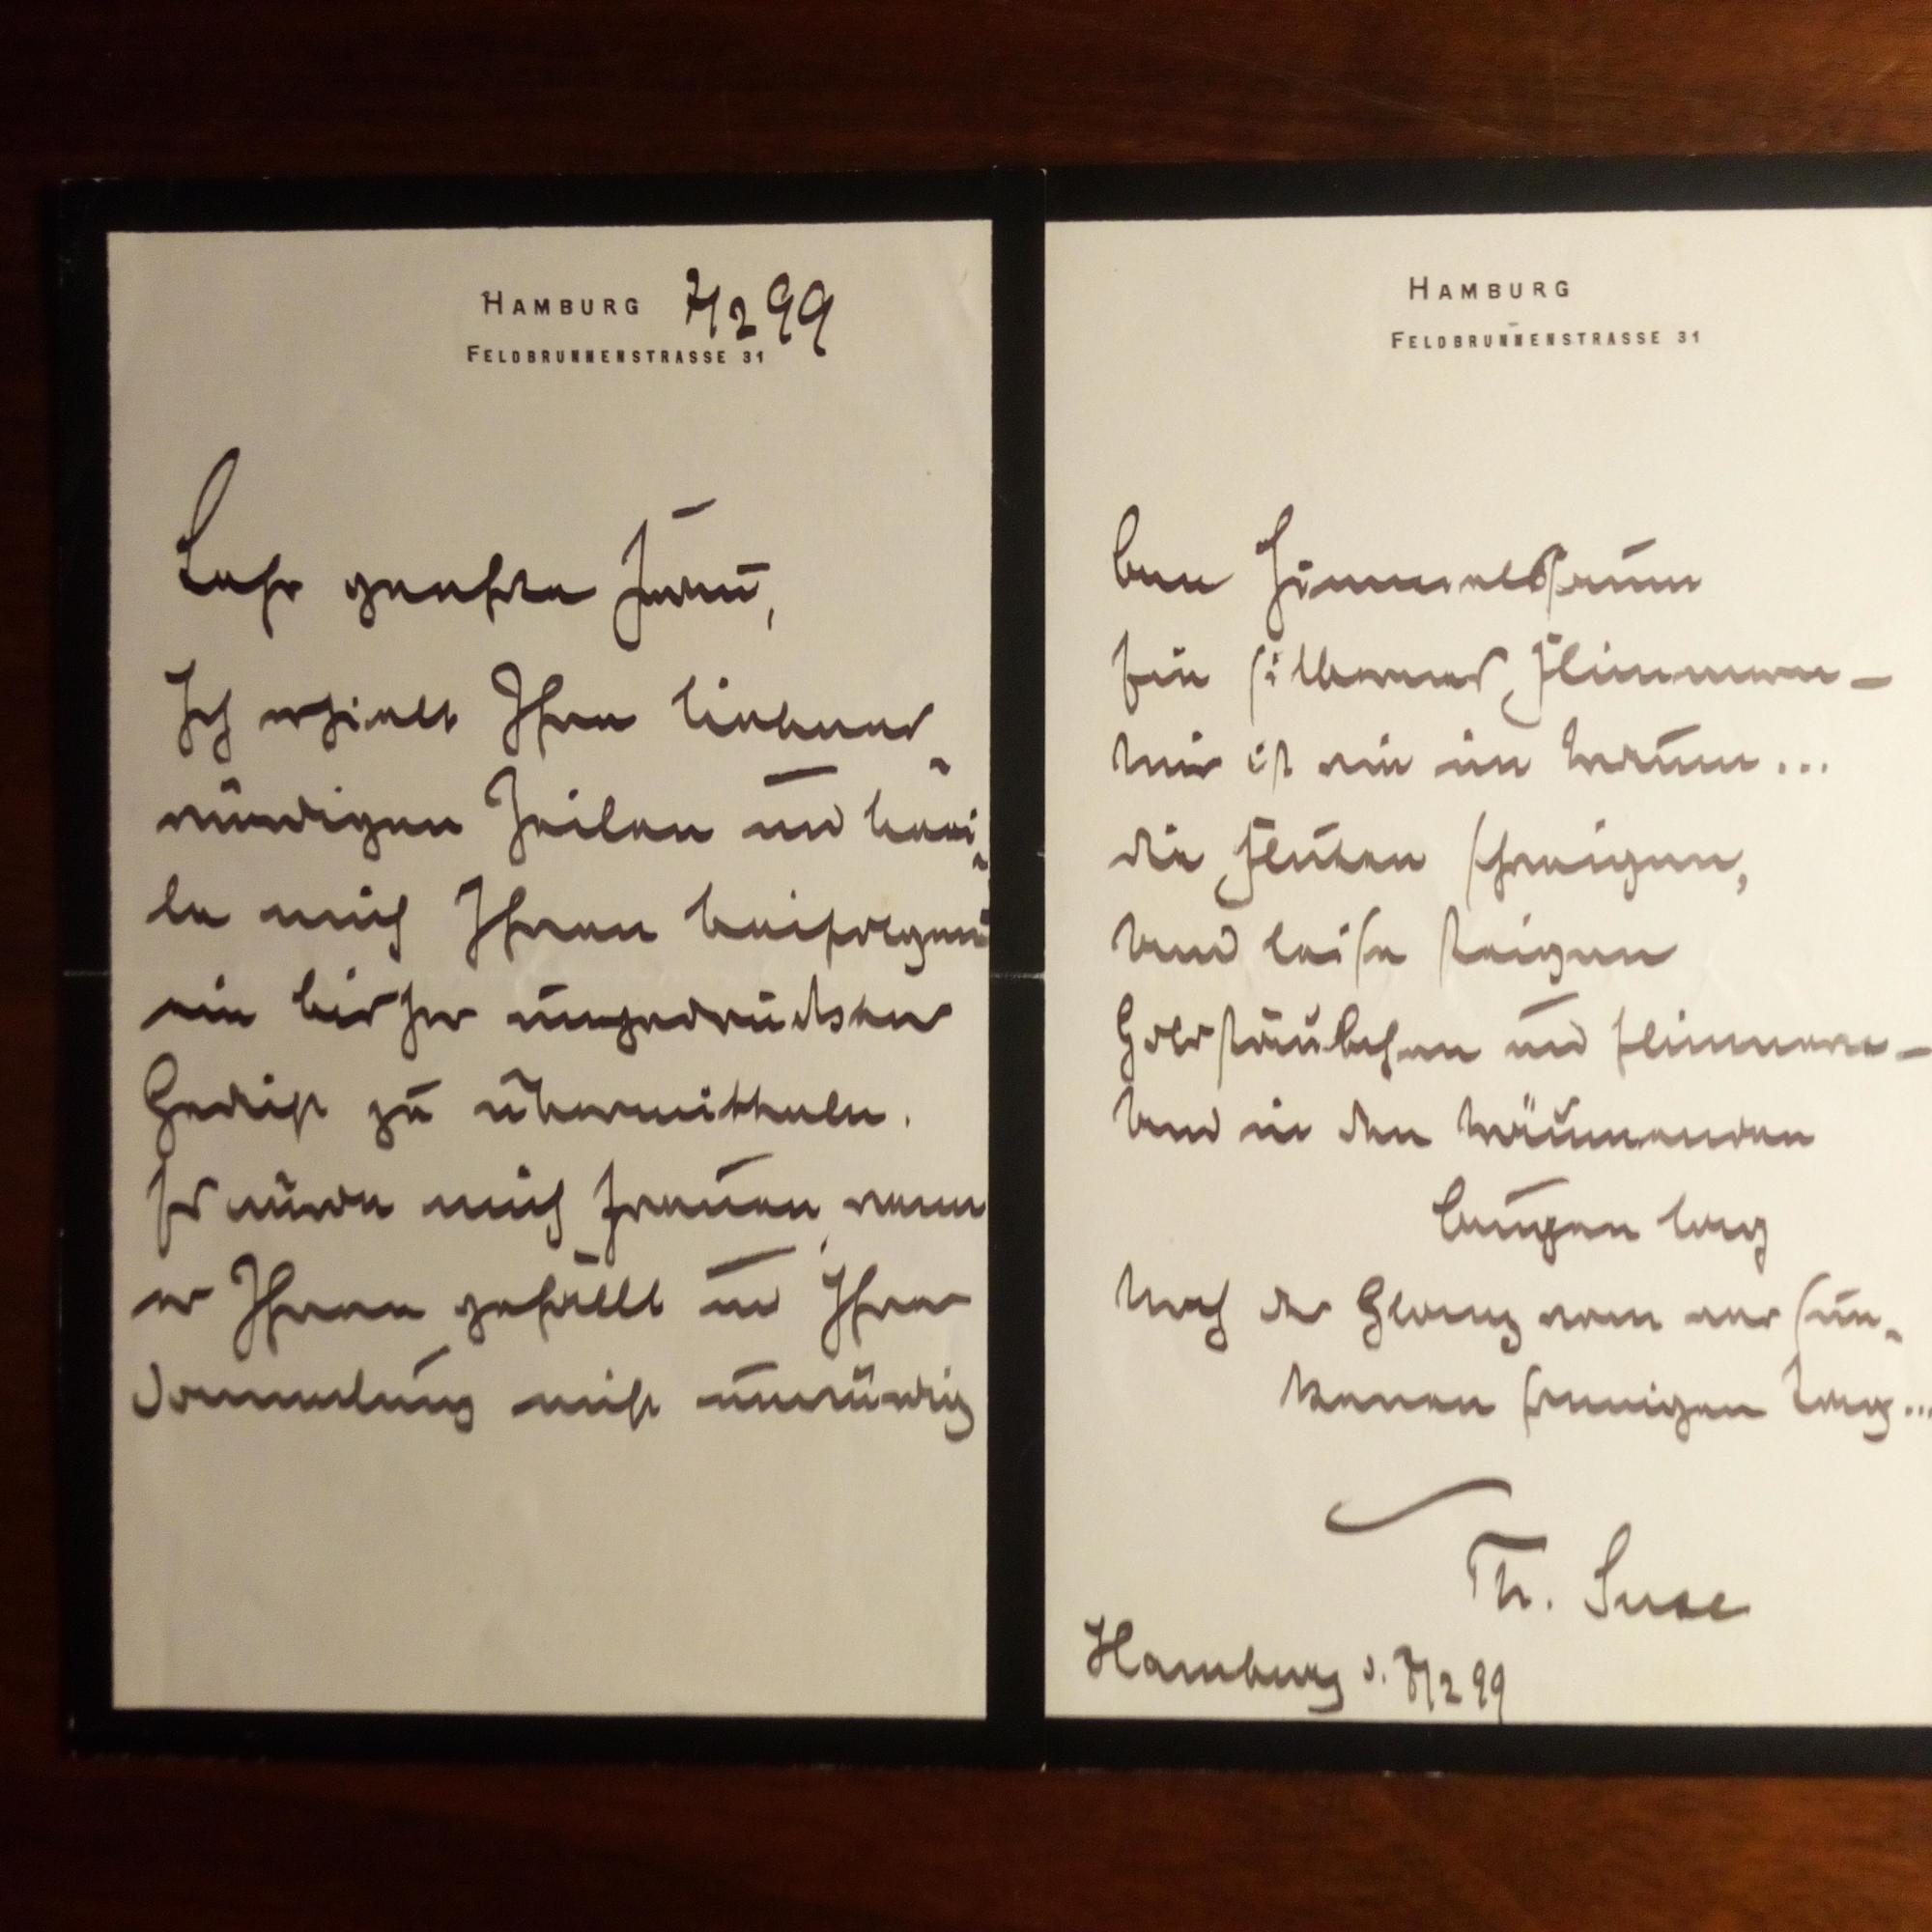 HAMBURG 7/2 99
FELDBRUNNENSTRASSE 31
Sehr geehrte Frau,
Ich erhielt Ihre liebens-
würdigen Zeilen und beei-
le mich Ihnen beifolgend
ein bisher ungedrucktes
Gedicht zu übermitteln.
Es würde mich freuen, wenn
es Ihnen gefällt und Ihrer
Sammlung nicht unwürdig
HAMBURG
FELDBRUNNENSTRASSE 31
Am Himmelssaum
Ein silbernes Flimmern –
Mir ist wie im Traum...
die Fluten schweigen,
Und leise steigen
Goldstäubchen und flimmern –
Und in den träumenden
Augen lag
Noch der Glanz vom ver sun-
kenen sonnigen Tag...
Th. Suse
Hamburg d. 7/2 99